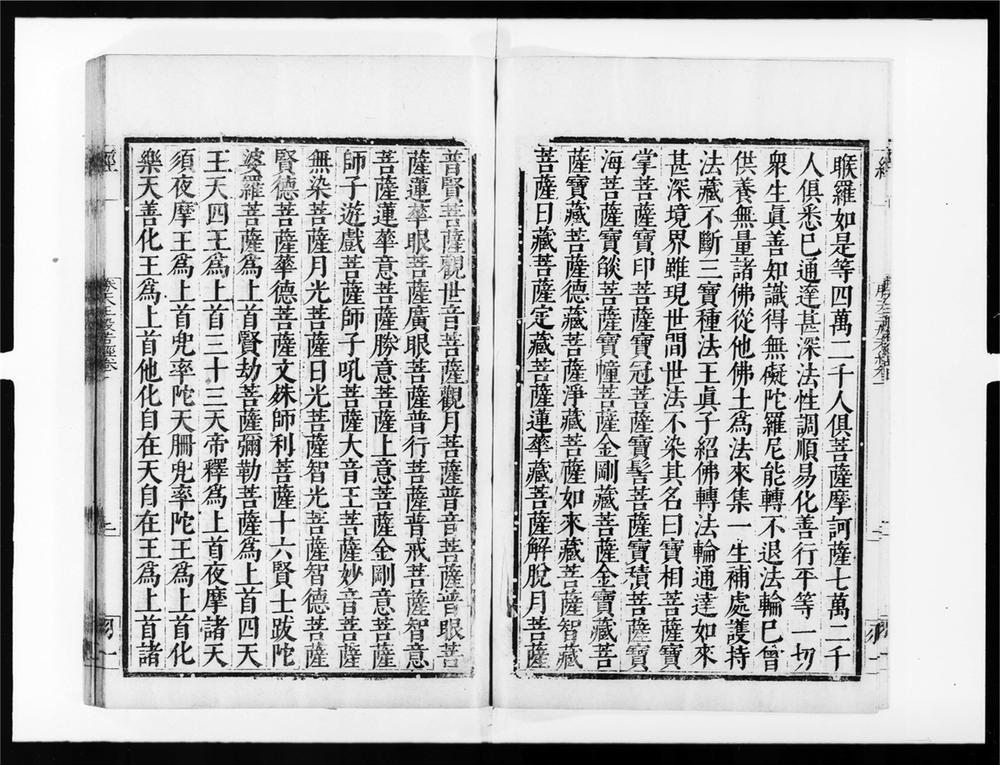 睺羅如是等四萬二千人俱菩薩摩訶薩七萬二千
人俱悉已通達甚深法性調順易化善行平等一切
衆生眞善知識得無礙陀羅尼能轉不退法輪已曾
供養無量諸佛從他佛土爲法來集一生補處護持
法藏不斷三寶種法王眞子紹佛轉法輪通達如來
甚深境界雖現世間世法不染其名曰寶相菩薩寶
掌菩薩寶印菩薩寶冠菩薩寶髻菩薩寶積菩薩寶
海菩薩寶燄菩薩寶幢菩薩金剛藏菩薩金寶藏菩
薩寶藏菩薩德藏菩薩淨藏菩薩如來藏菩薩智藏
菩薩日藏菩薩定藏菩薩蓮華藏菩薩解脫月菩薩
普賢菩薩觀世音菩薩觀月菩薩普音菩薩普眼菩
薩蓮華眼菩薩廣眼菩薩普行菩薩普戒菩薩智意
菩薩蓮華意菩薩勝意菩薩上意菩薩金剛意菩薩
師子遊戲菩薩師子吼菩薩大音王菩薩妙音菩薩
無染菩薩月光菩薩日光菩薩智光菩薩智德菩薩
賢德菩薩華德菩薩文殊師利菩薩十六賢士跋陀
婆羅菩薩爲上首賢劫菩薩彌勒菩薩爲上首四天
王天四王爲上首三十三天帝釋爲上首夜摩諸天
須夜摩王爲上首兜率陀天刪兜率陀王爲上首化
樂天善化王爲上首他化自在天自在王爲上首諸
經一